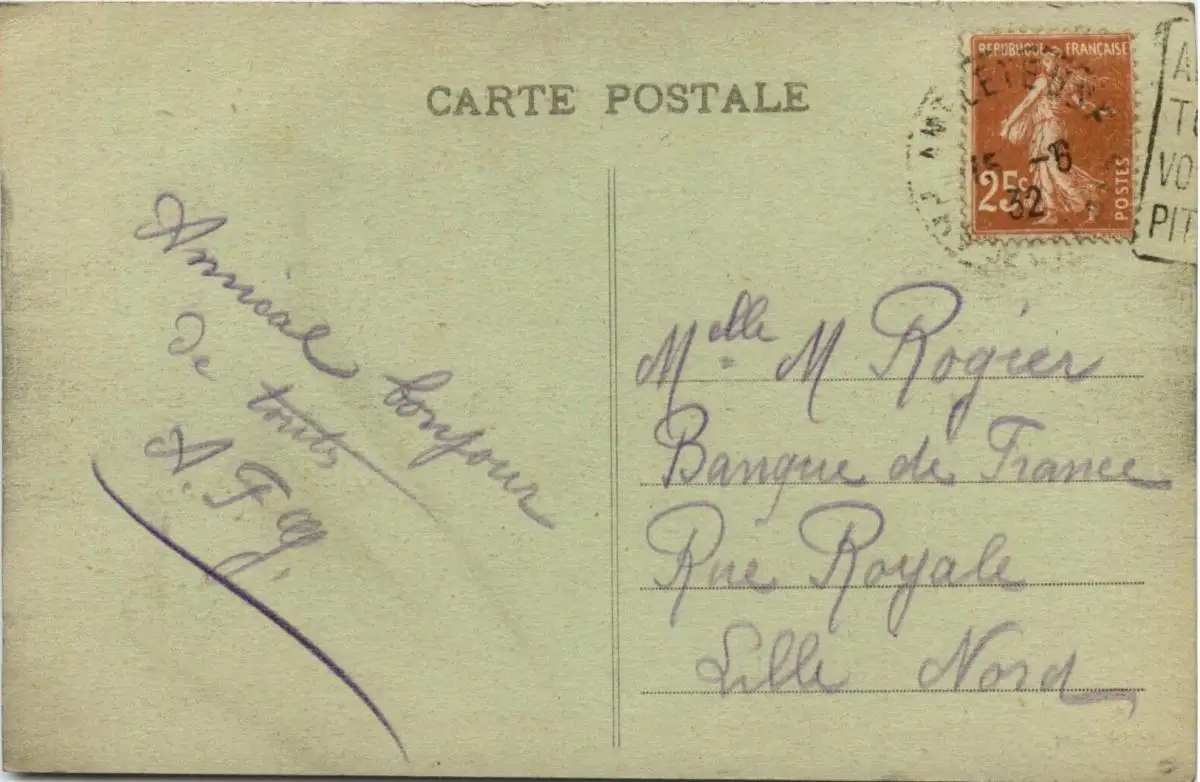 CARTE POSTALE
REPUBLIQUE FRANÇAISE
25c
POSTES
AMBLETEUSE
15 -6
32
VO
PIT
Amical bonjour
de toute
A. F. G.
Melle M Rogier
Banque de France
Rue Royale
Lille Nord